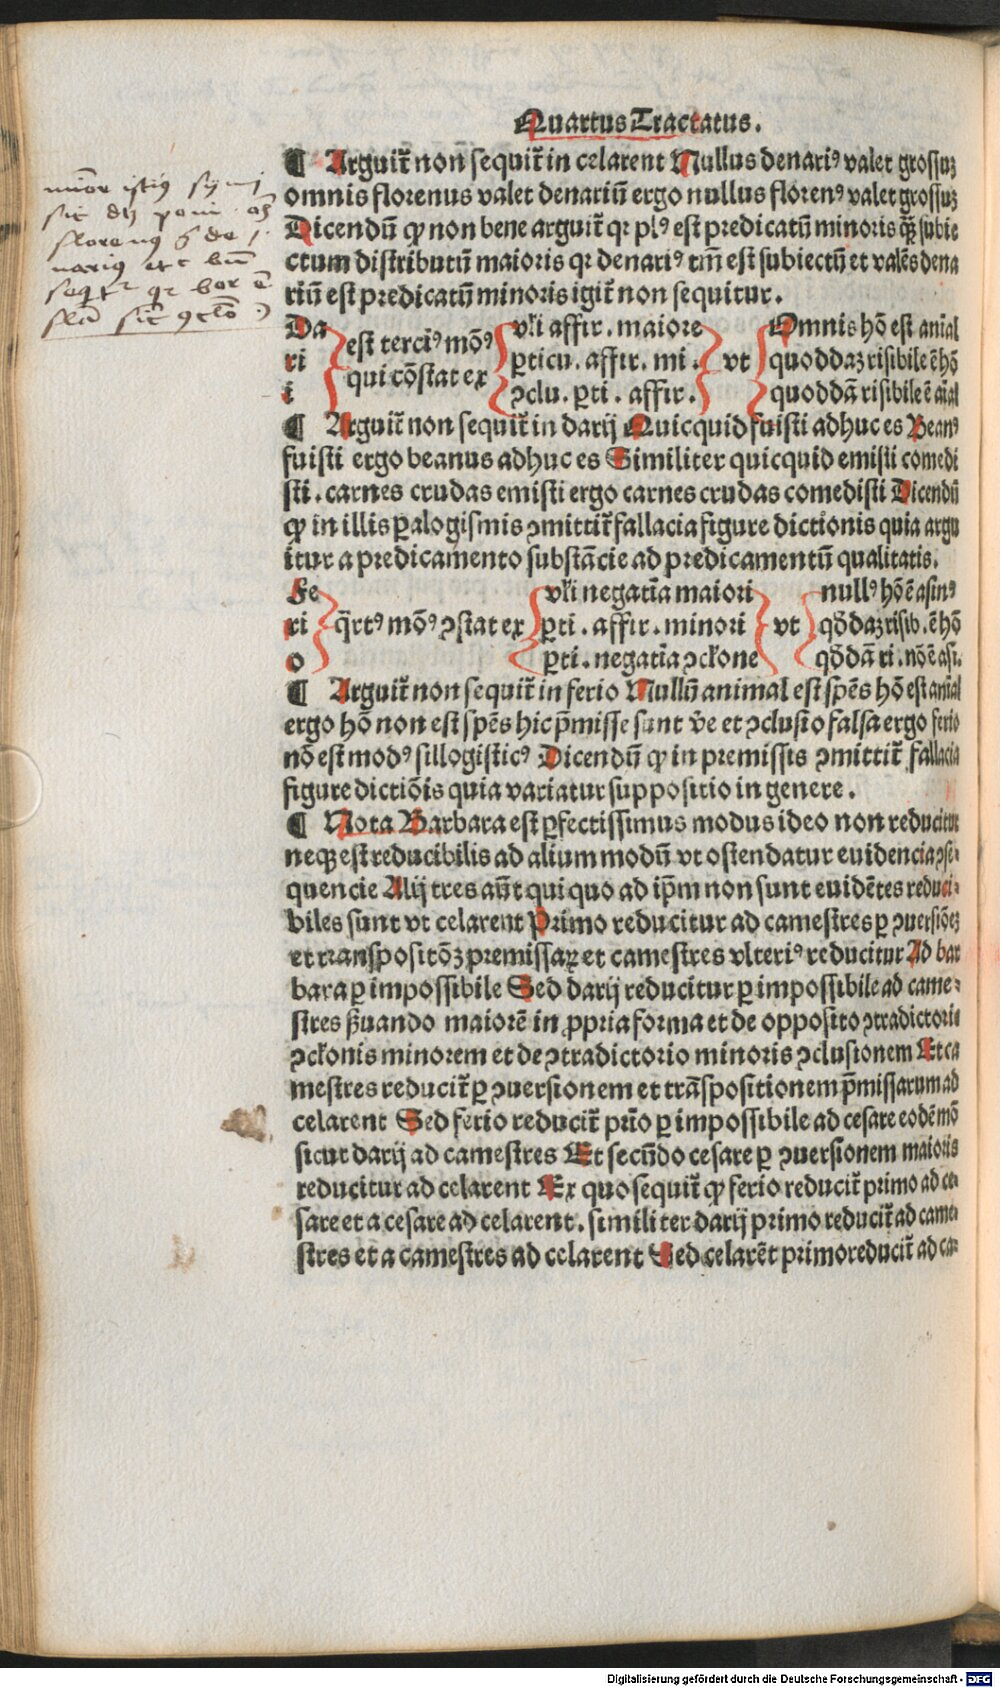 Quartus Tractatus.
¶ Arguit̃ non sequit̃ in celarent Nullus denariꝰ valet grossuꝫ
omnis florenus valet denariũ ergo nullus florenꝰ valet grossuꝫ
Dicendũ ꝙ non bene arguit̃ qꝛ plꝰ est predicatũ minoris qꝫ̃ subie
ctum distributũ maioris qꝛ denariꝰ tm̃ est subiectũ et valẽs dena
riũ est predicatũ minoris igit̃ non sequitur.
Da
ri
i
est terciꝰ mõꝰ
qui cõstat ex
vl̃i affir. maiore
ꝑticu. affir. mi.
ꝯclu. ꝑti. affir.
vt
Omnis hõ est anĩal
quoddaꝫ risibile ẽ hõ
quoddã risibile ẽ aĩal
¶ Arguit̃ non sequit̃ in darij Quicquid fuisti adhuc es Beanꝰ
fuisti ergo beanus adhuc es Similiter quicquid emisti comedi
sti. carnes crudas emisti ergo carnes crudas comedisti Dicendũ
ꝙ in illis ꝑalogismis ꝯmittit̃ fallacia figure dictionis quia argu
itur a predicamento substãcie ad predicamentũ qualitatis.
Fe
ri
o
q̃rtꝰ mõꝰ ꝯstat ex
vl̃i negatĩa maiori
ꝑti. affir. minori
ꝑti. negatĩa ꝯcl̃one
vt
nullꝰ hõ ẽ asinꝰ
qđdaꝫ risib. ẽ hõ
qđdã ri. nõ ẽ asi.
¶ Arguit̃ non sequit̃ in ferio Nullũ animal est spẽs hõ est anĩal
ergo hõ non est spẽs hic p̃misse sunt ṽe et ꝯclusio falsa ergo ferio
nõ est modꝰ sillogisticꝰ Dicendũ ꝙ in premissis ꝯmittit̃ fallacia
figure dictiõis quia variatur suppositio in genere.
¶ Nota Barbara est ꝑfectissimus modus ideo non reducitur
neqꝫ est reducibilis ad alium modũ vt ostendatur euidencia ꝯse⸗
quencie Alij tres aũt qui quo ad ip̃m non sunt euidẽtes reduci⸗
biles sunt vt celarent Primo reducitur ad camestres ꝑ ꝯuersiõeꝫ
et transpositõꝫ premissaꝝ et camestres vlteriꝰ reducitur Ad bar
bara ꝑ impossibile Sed darij reducitur ꝑ impossibile ad came⸗
stres ẞuando maiorẽ in ꝓpria forma et de opposito ꝯtradictorie
ꝯcl̃onis minorem et de ꝯtradictorio minoris ꝯclusionem Et ca
mestres reducit̃ ꝑ ꝯuersionem et trãspositionem p̃missarum ad
celarent Sed ferio reducit̃ pño ꝑ impossibile ad cesare eodẽ mõ
sicut darij ad camestres Et secũdo cesare ꝑ ꝯuersionem maioris
reducitur ad celarent Ex quo sequit̃ ꝙ ferio reducit̃ primo ad ce⸗
sare et a cesare ad celarent. similiter darij primo reducit̃ ad came⸗
stres et a camestres ad celarent Sed celarẽt primo reducit̃ ad ca⸗
Digitalisierung gefördert durch die Deutsche Forschungsgemeinschaft - DFG